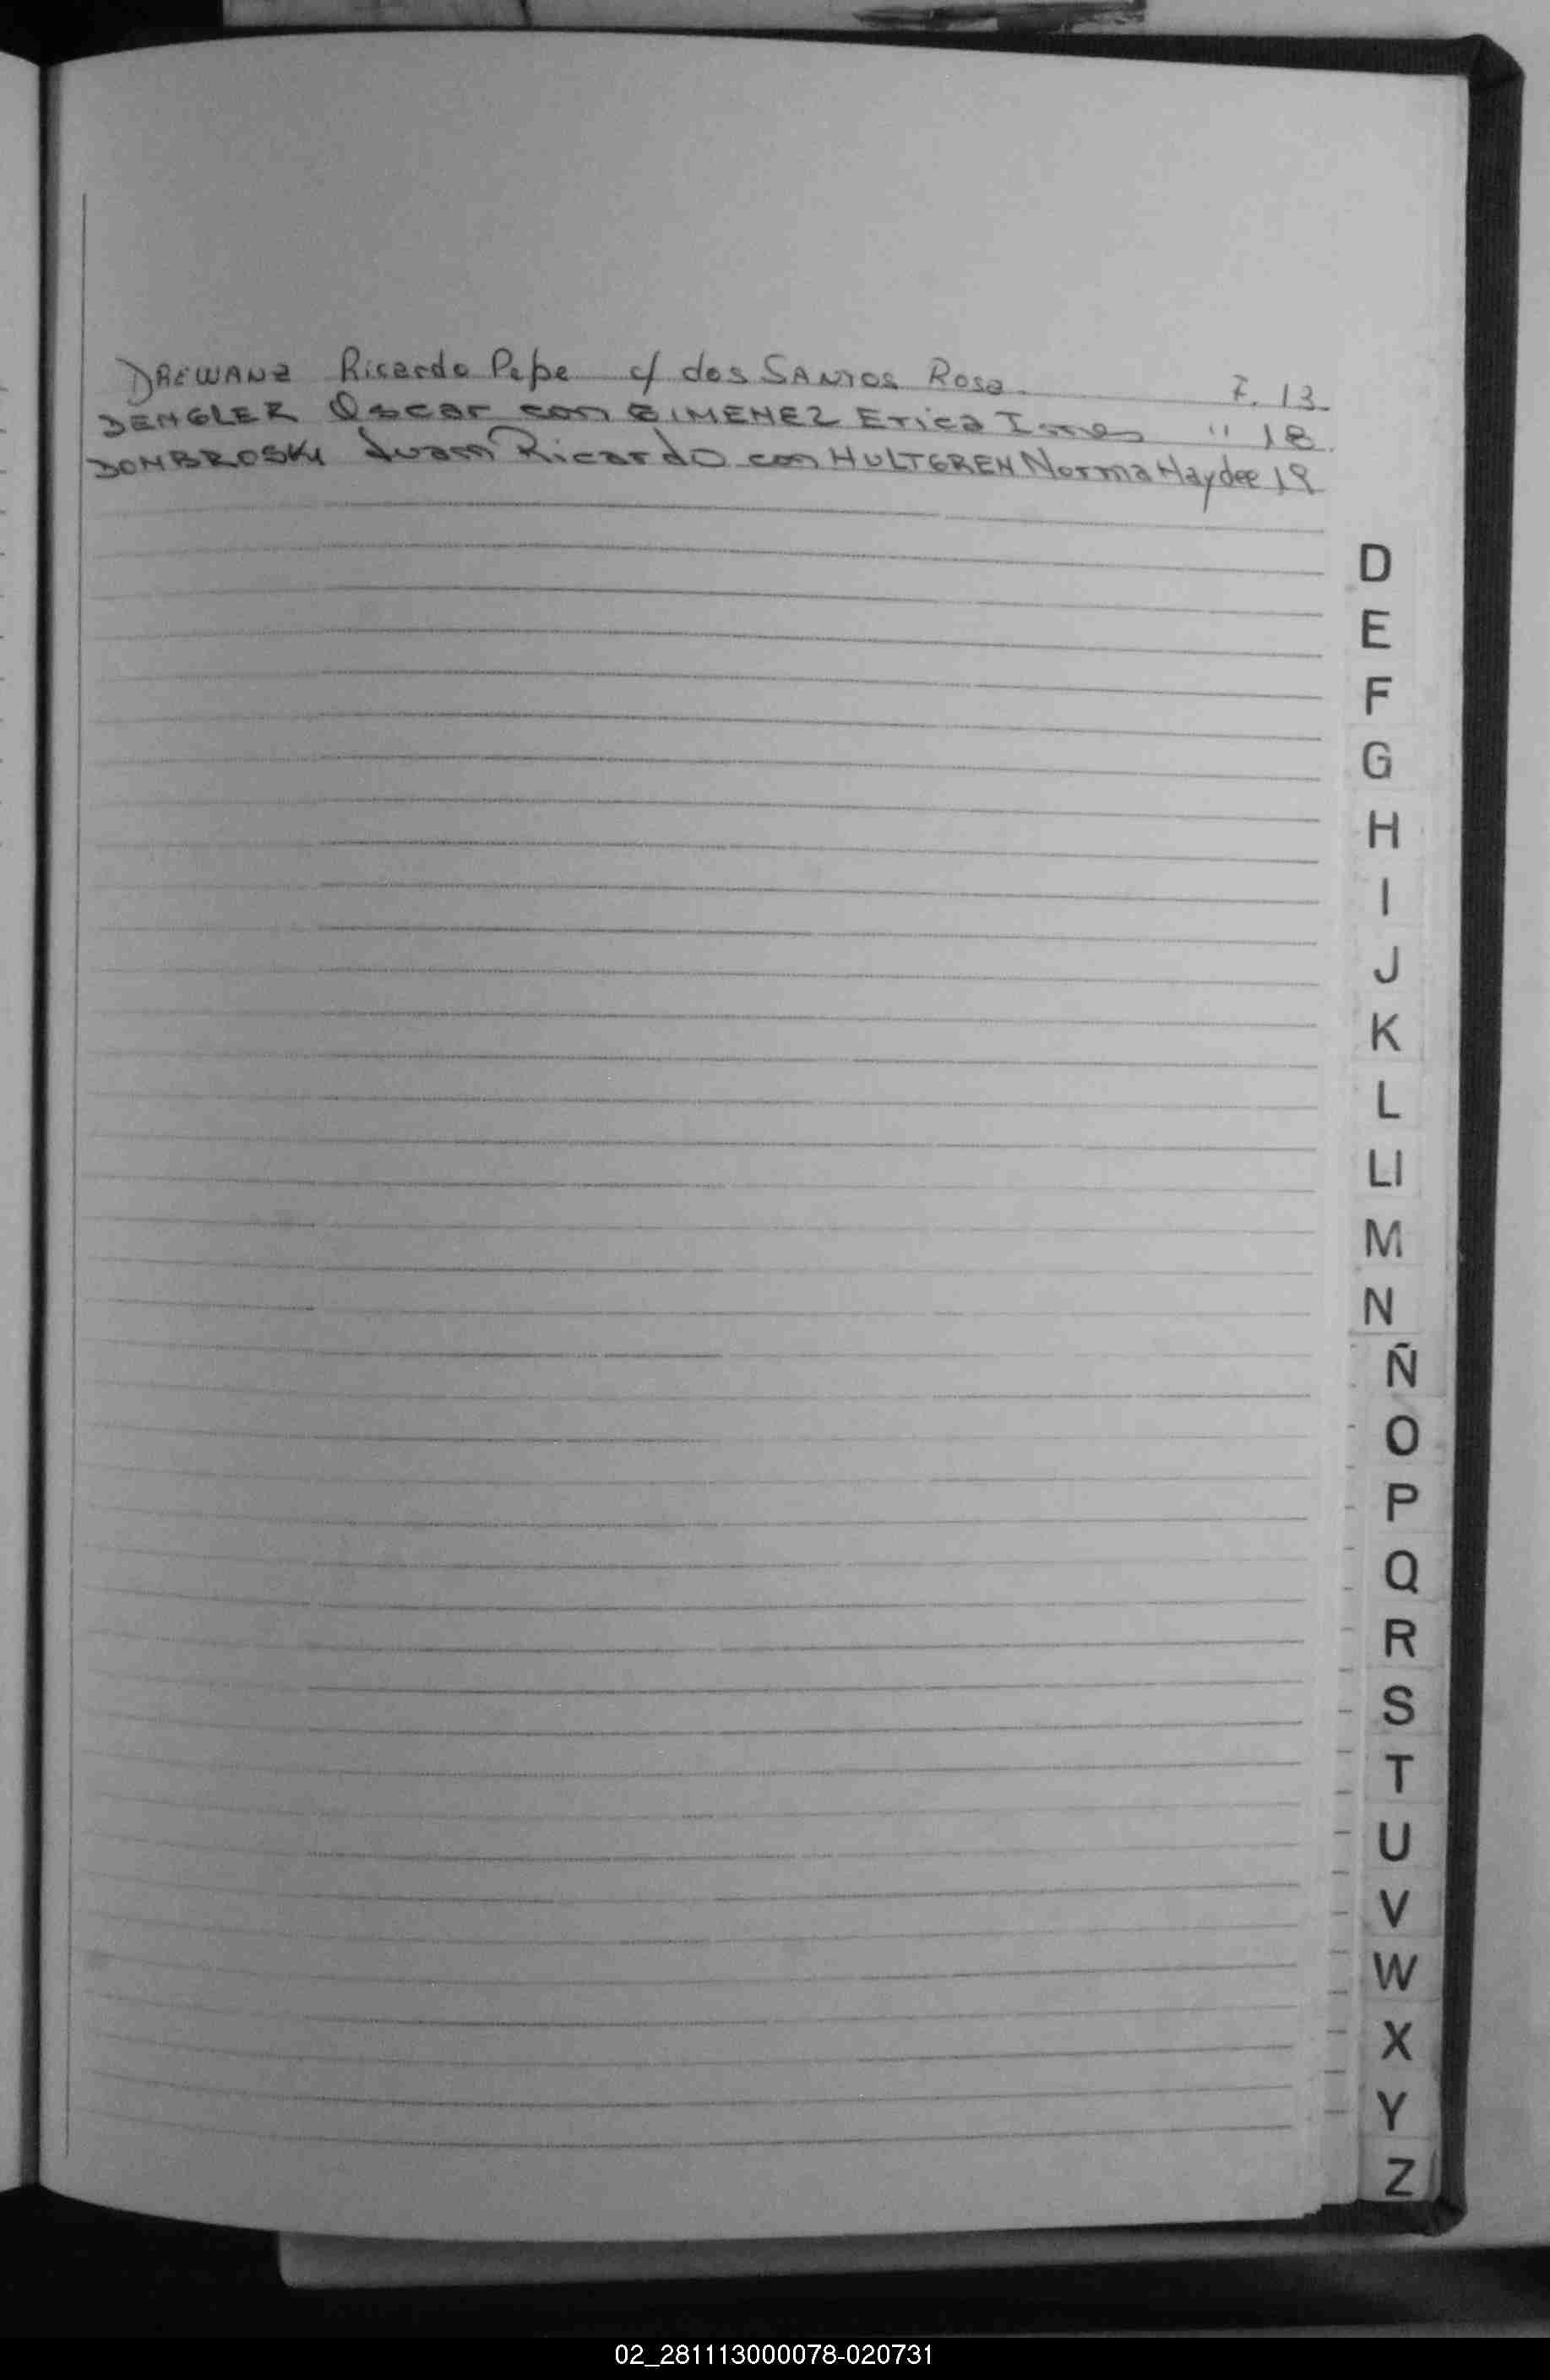 DREWANZ Ricardo Pepe c/ dos SANTOS Rosa F. 13
DENGLER Oscar con GIMENEZ Erica Ines " 18
DOMBROSKI Juan Ricardo con HULTGREN Norma Haydee 19
D
E
F
G
H
I
J
K
L
Ll
M
N
Ñ
O
P
Q
R
S
T
U
V
W
X
Y
Z
02_281113000078-020731